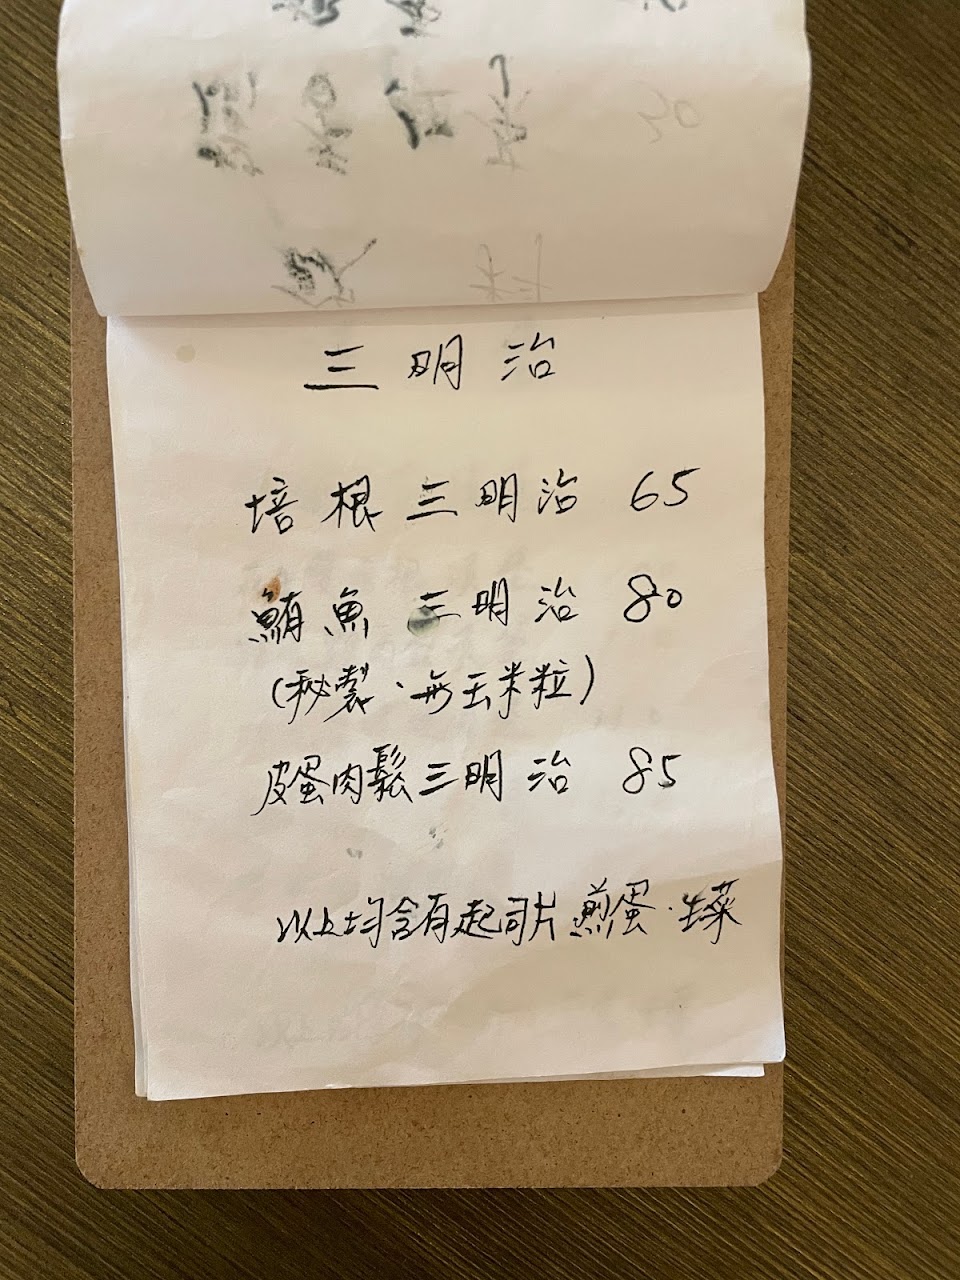 三明治
培根三明治 65
鮪魚三明治 80
(秘製·無玉米粒)
皮蛋肉鬆三明治 85
以上均含有起司片 煎蛋·生菜